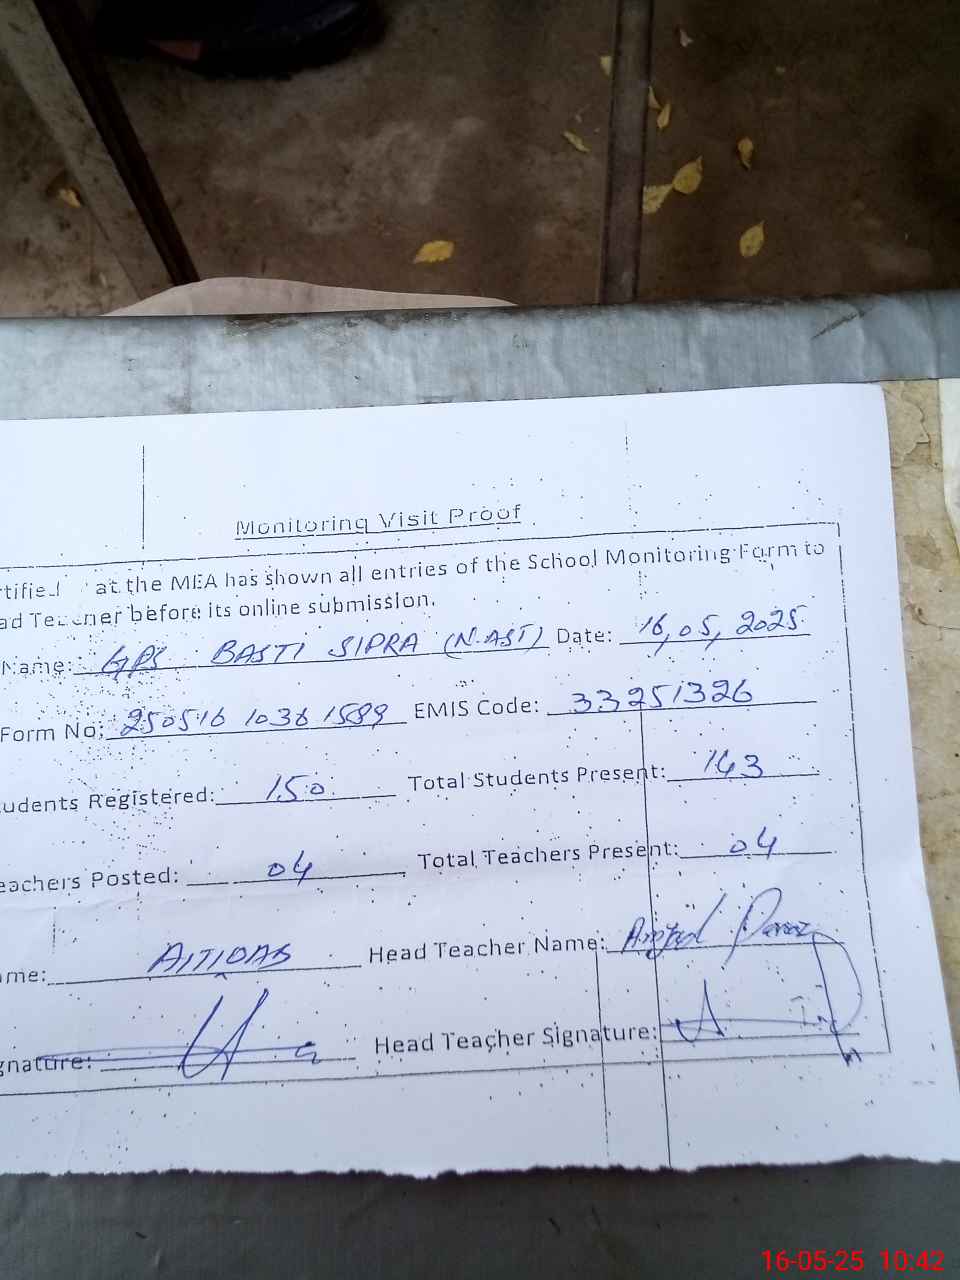 Monitoring Visit Proof
rtified at the MEA has shown all entries of the School Monitoring Form to
ad Teacher before its online submission.
Name: GPS BASTI SIPRA (N.AST) Date: 16,05,2025
Form No: 250516 1036 1589 EMIS Code: 33251326
tudents Registered: 150 Total Students Present: 143
eachers Posted: 04 Total Teachers Present: 04
me: Head Teacher Name: Amjad
gnature: Head Teacher Signature:
16-05-25 10:42